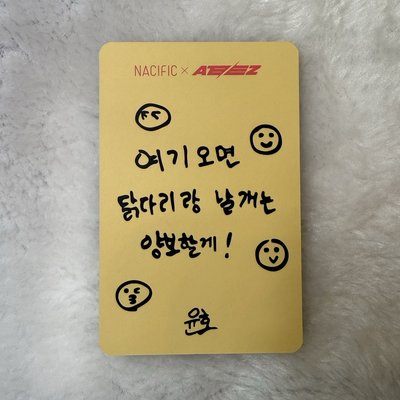 NACIFIC × ATEEZ
여기오면
닭다리랑 날개는
양보할게!
윤호